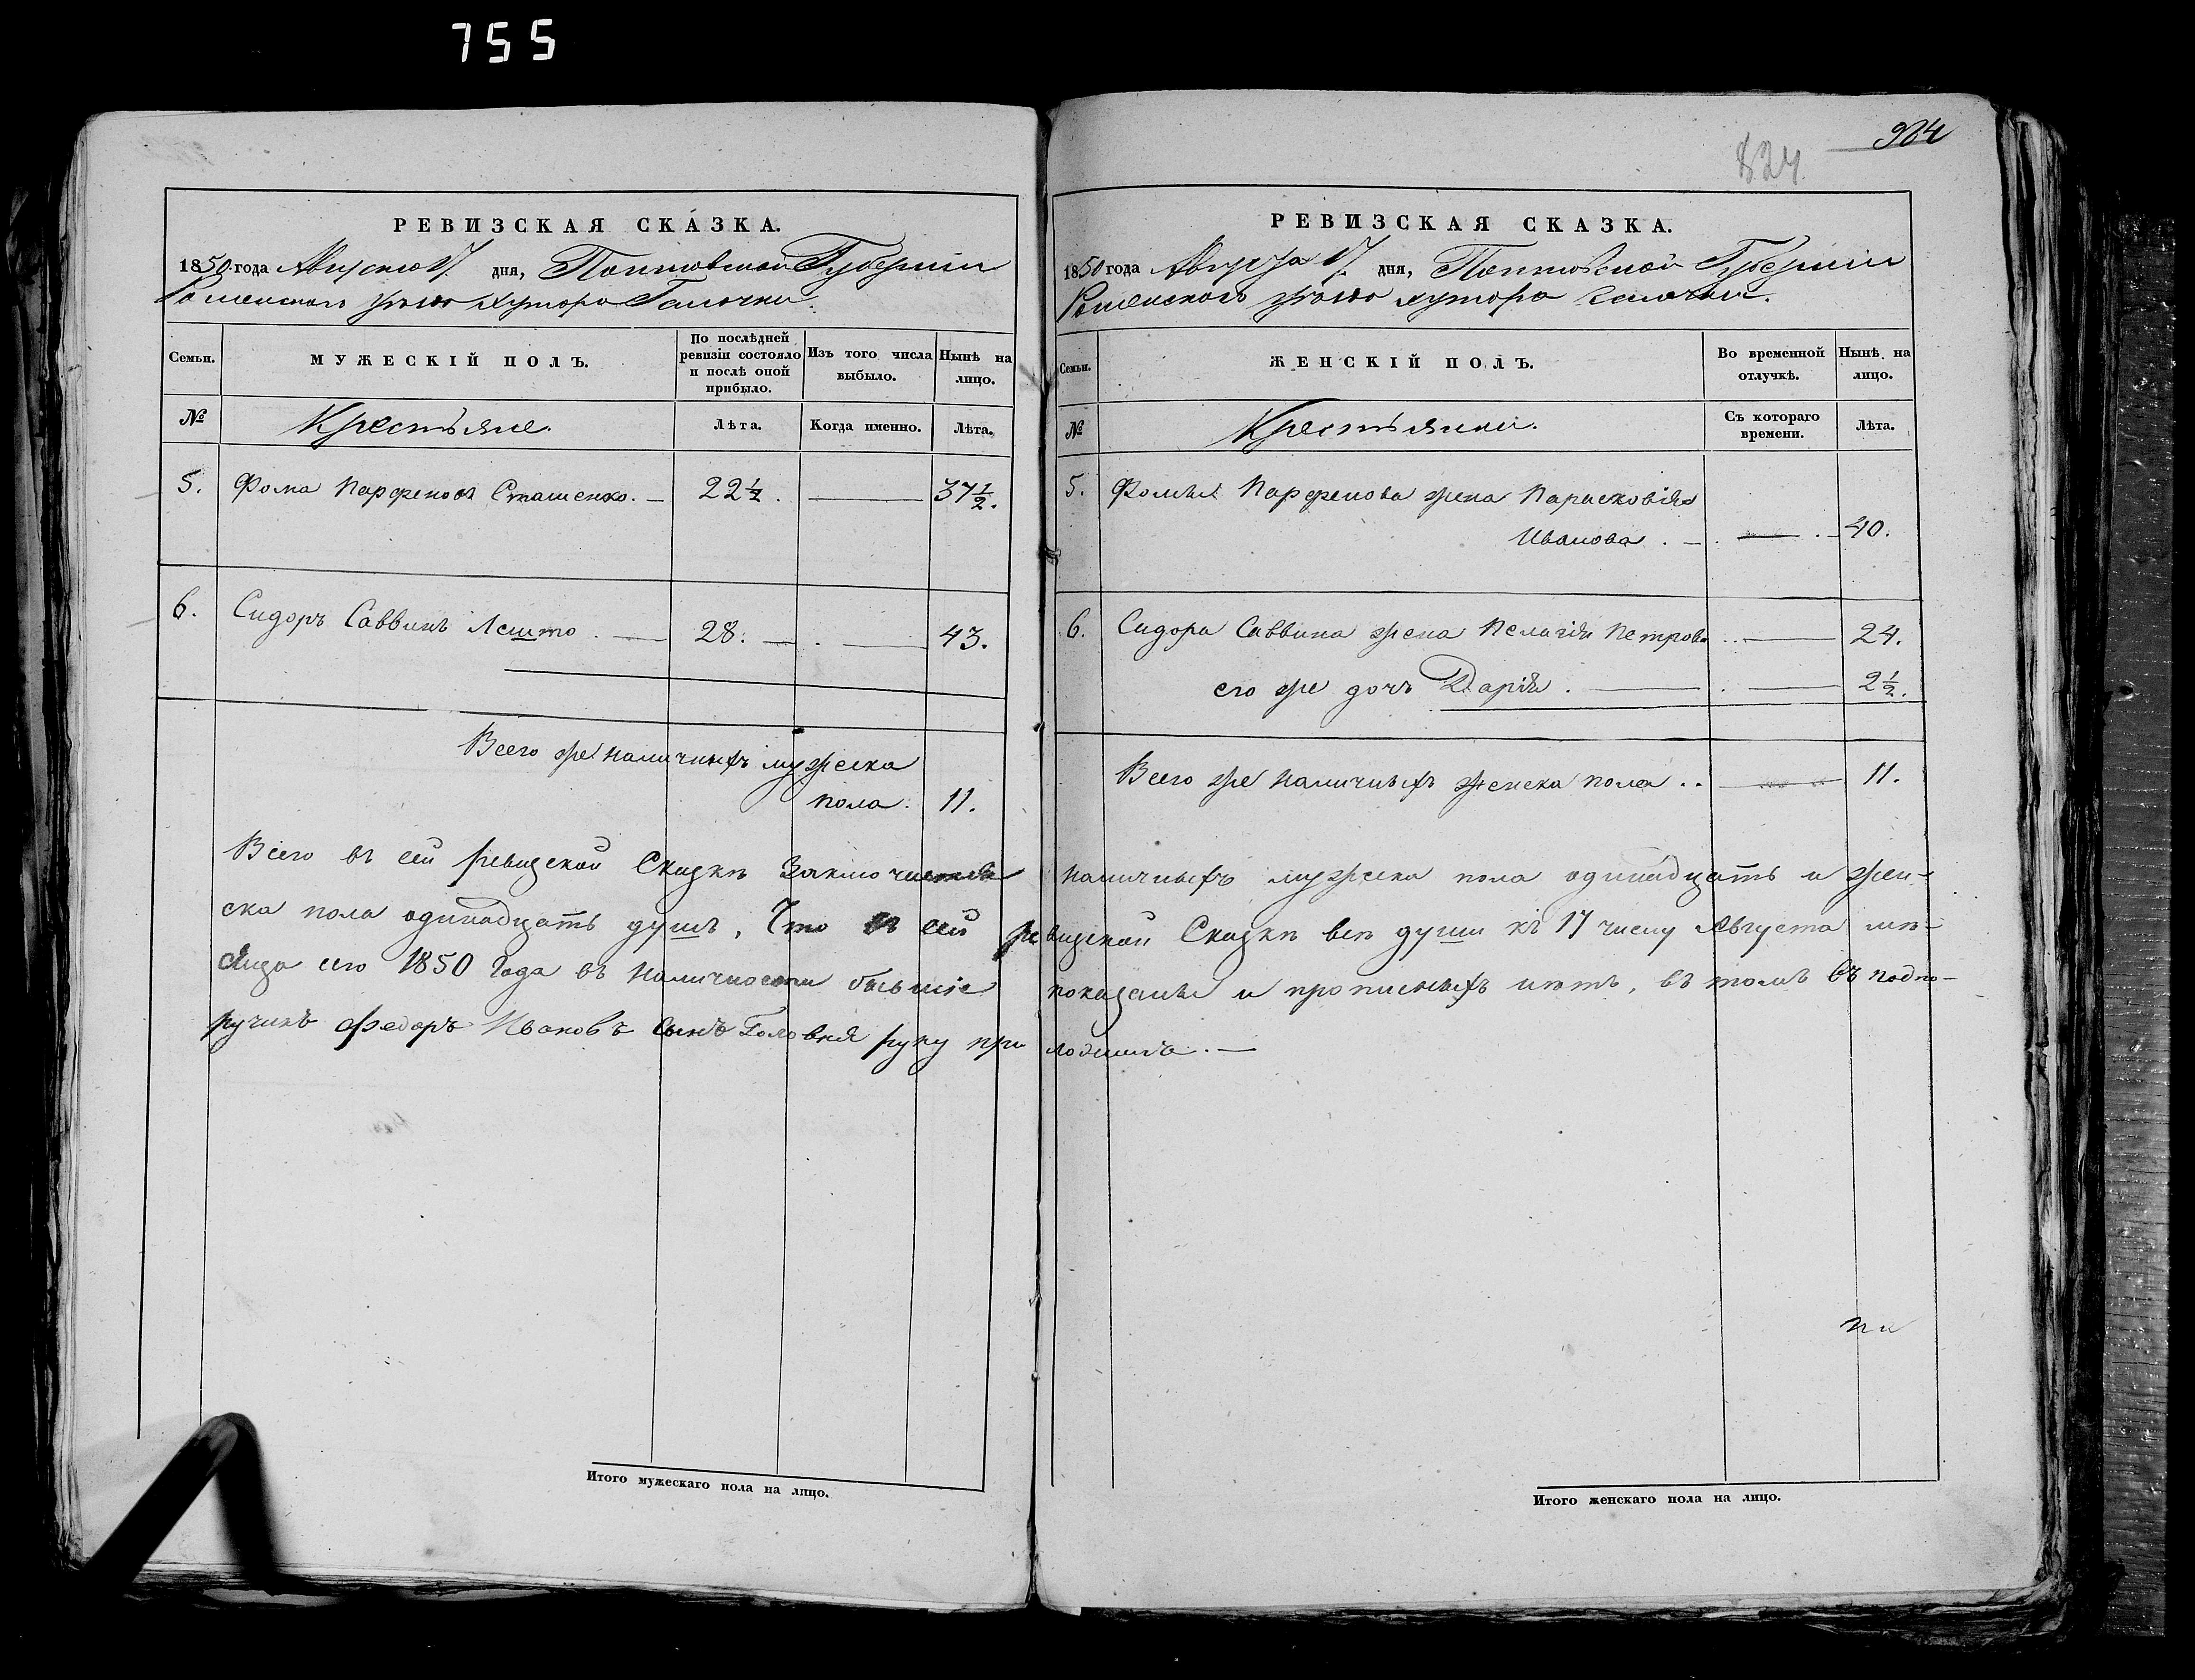 755
984
824
РЕВИЗСКАЯ СКАЗКА.
1850 года Августа 17 дня, Полтавской Губерніи
Роменского уѣзда хутора Галочки.
Семьи.
МУЖЕСКІЙ ПОЛЪ.
По послѣдней ревизіи состояло и послѣ оной прибыло.
Изъ того числа выбыло.
Нынѣ на лицо.
№
Крестьяне.
Лѣта.
Когда именно.
Лѣта.
5. Фома Парфеновъ Сташенко. — 22½. — 37½.
6. Сидоръ Саввинъ . — 28. — . — 43.
Всего же наличныхъ мужеска
пола. 11.
РЕВИЗСКАЯ СКАЗКА.
1850 года Августа 17 дня, Полтавской Губерніи
Роменского уѣзда хутора Галочки.
Семьи.
ЖЕНСКІЙ ПОЛЪ.
Во временной отлучкѣ.
Нынѣ на лицо.
№
Крестьянки.
Съ котораго времени.
Лѣта.
5. Фомы Парфенова жена Парасковія
Иванова . — . — . — 40.
6. Сидора Саввина жена Пелагія Петрова . . — 24.
его же дочь Дарія . — . — 2½.
Всего же наличныхъ женска пола . . — 11.
Всего въ сей ревизской Сказкѣ Заключается наличныхъ мужеска пола одинадцать и жен-
ска пола одинадцать душъ, Что въ сей ревизской Сказкѣ всѣ души къ 17 числу Августа мѣ-
сяца сего 1850 Года въ наличности бывшіе показаны и прописныхъ нѣтъ, въ томъ въ подпо-
ручикъ Федоръ Ивановъ сынъ Головня руку приложилъ. —
Итого мужескаго пола на лицо.
Итого женскаго пола на лицо.